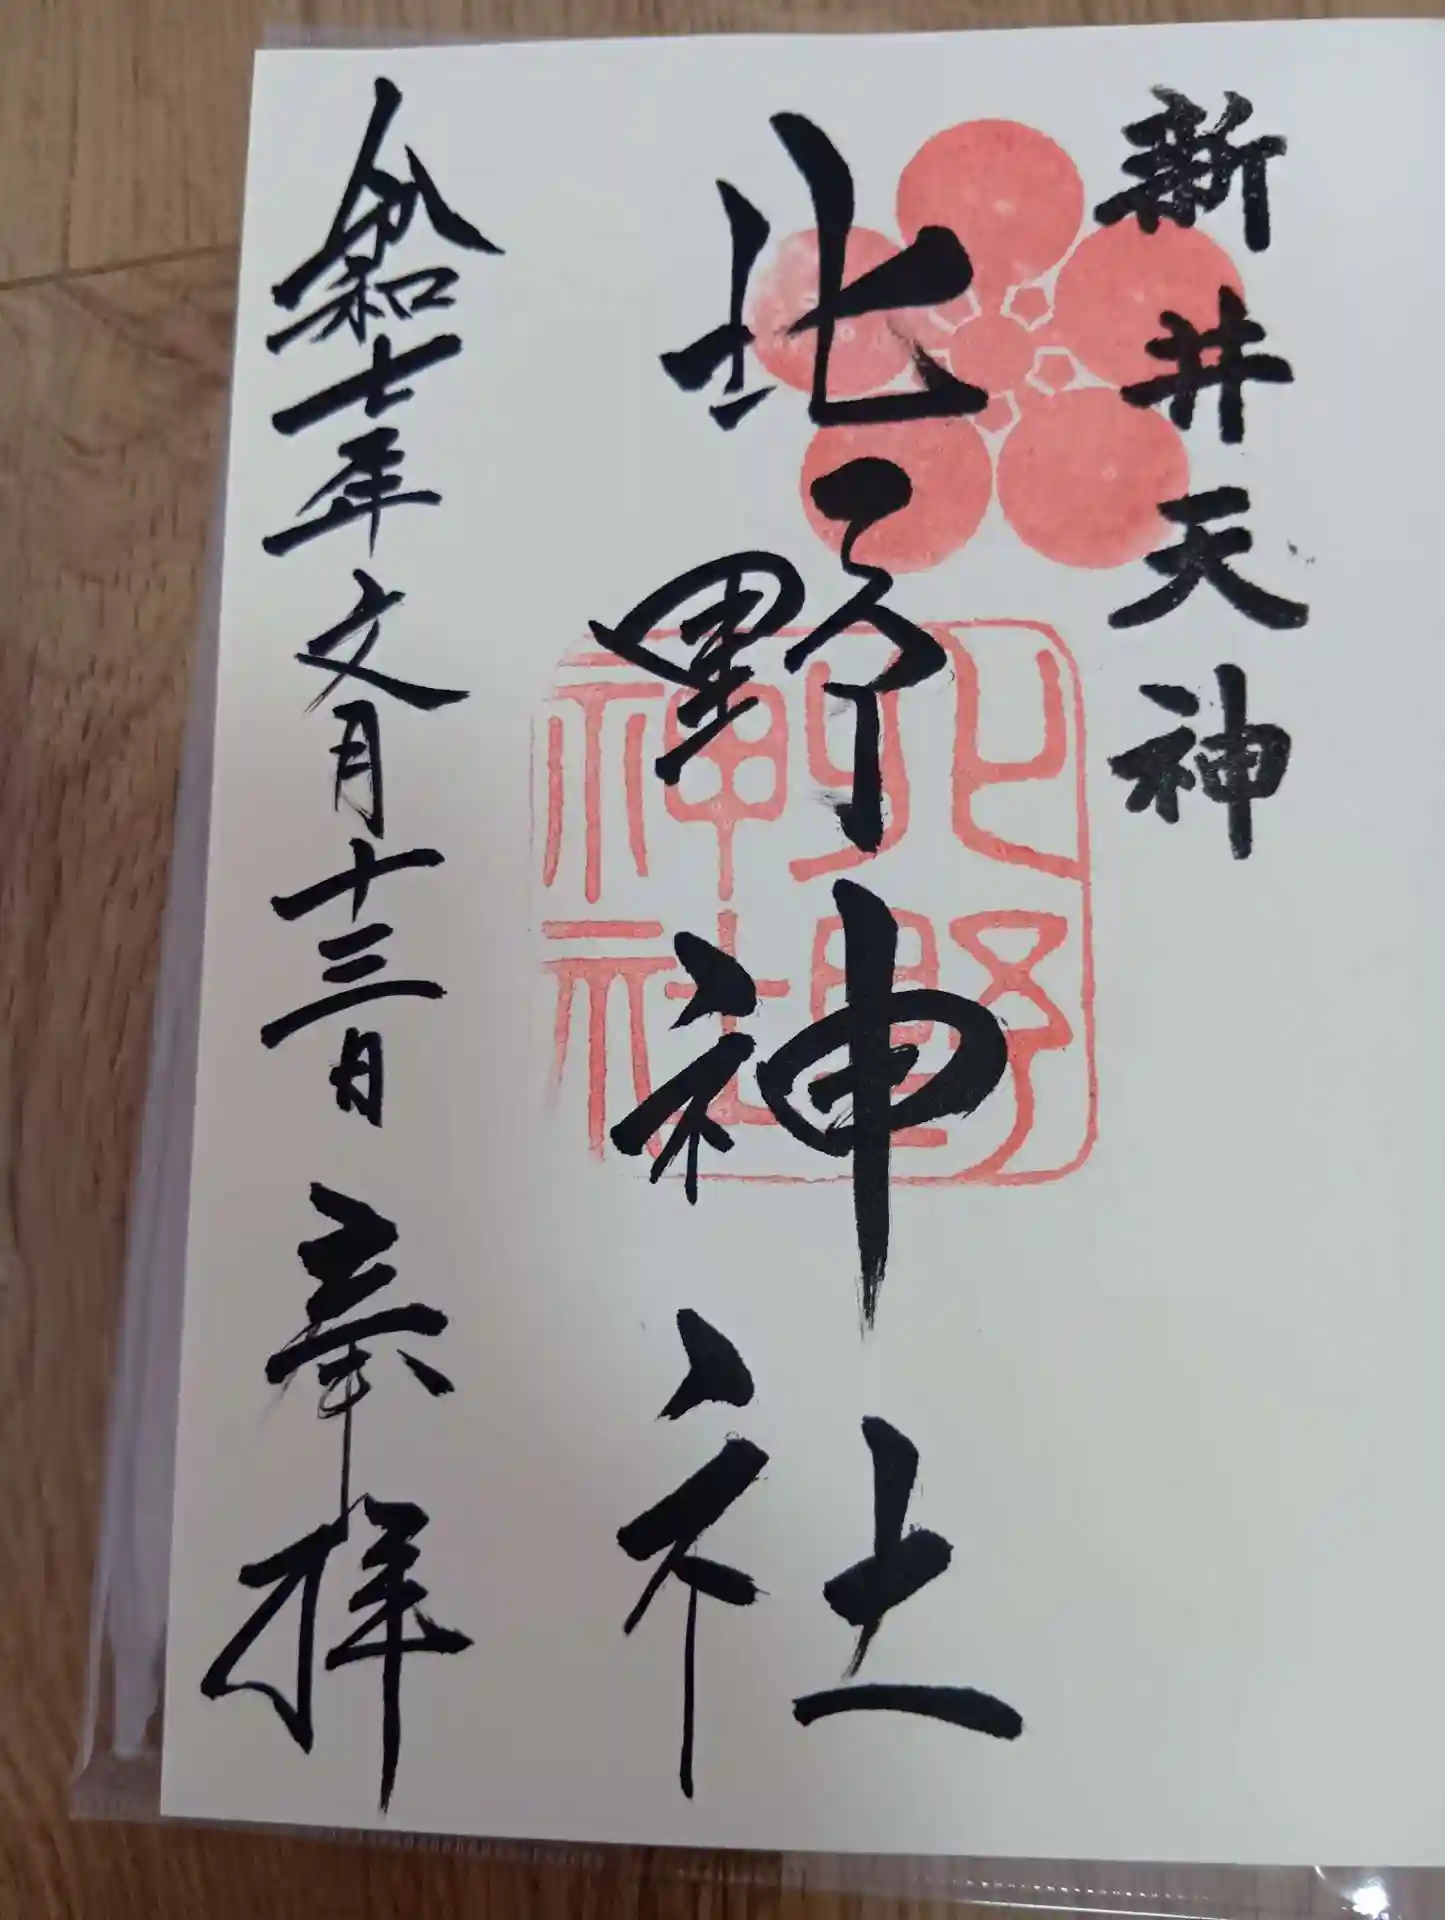 新井天神
北野神社
令和七年文月十三日 奉拝
北野神社